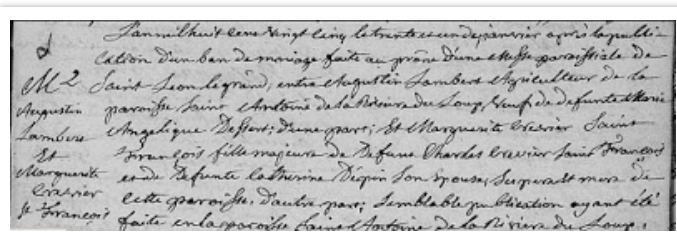 M 2
Augustin
Lambert
Et
Marguerite
Crevier
St François
L'an mil huit cens vingt cinq le trente et un de janvier après la publi-
cation d'un ban de mariage faite au prône d'une Messe paroissiale de
Saint Leon legrand, entre Augustin Lambert Agriculteur de la
paroisse Saint Antoine de la Riviere du Loup, Veuf de defunte Marie
Angelique d'une part; Et Marguerite Crevier Saint
François fille majeure de Defunt Charles Crevier Saint François
et de Defunte Catherine son epouse, ses pere et mere de
cette paroisse, d'autre part; semblable publication ayant été
faite en la paroisse Saint Antoine de la Riviere du Loup,